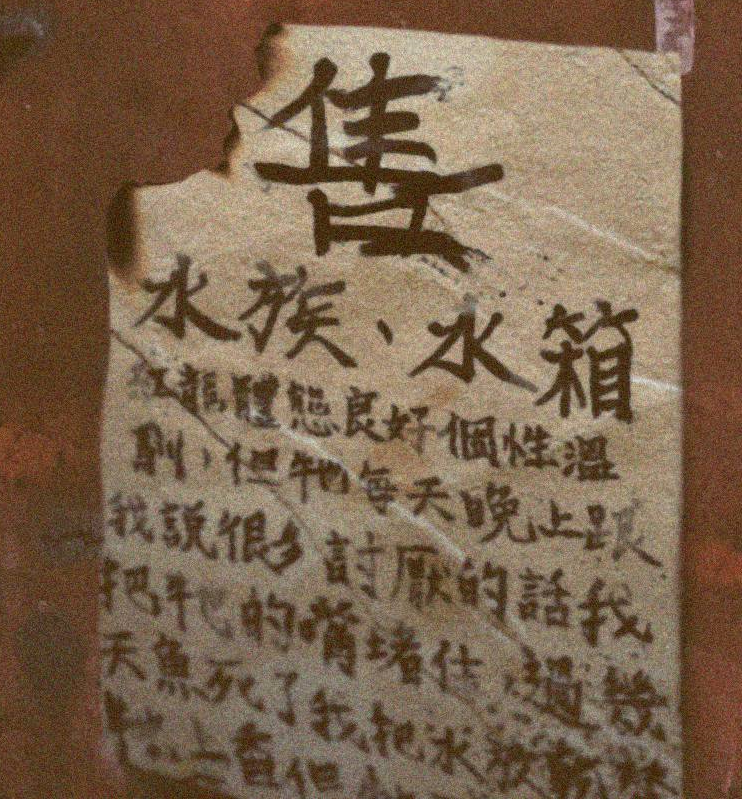 售
水族、水箱
紅龍體態良好個性溫
馴，但牠每天晚上跟
我說很多討厭的話我
把牠的嘴堵住 過幾
天魚死了我把水
牠 上 但